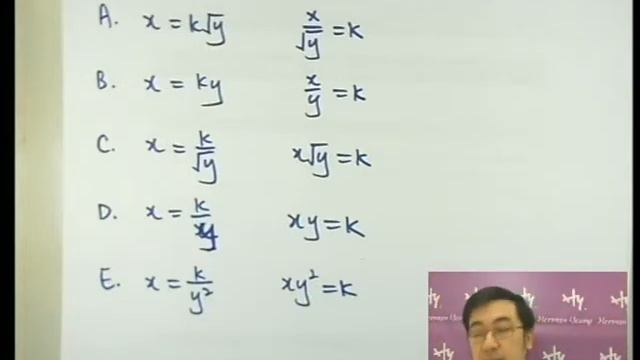 A. x = k√y x/√y = k
B. x = ky x/y = k
C. x = k/√y x√y = k
D. x = k/y xy = k
E. x = k/y² xy² = k